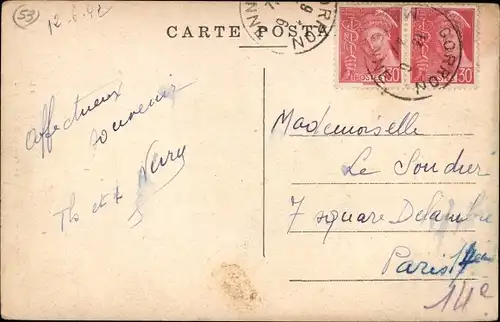 53
12.6.42
CARTE POSTA
GORRON
30
30
Affectueux
souvenir
Mademoiselle
Le Soudier
7 square Delambre
Paris 14e
14e